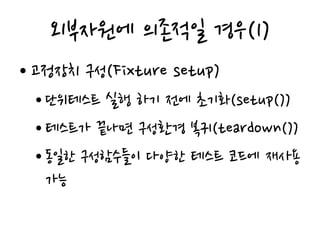 외부자원에 의존적일 경우(1)
• 고정장치 구성(Fixture setup)
• 단위테스트 실행 하기 전에 초기화(setup())
• 테스트가 끝나면 구성환경 복귀(teardown())
• 동일한 구성함수들이 다양한 테스트 코드에 재사용
가능